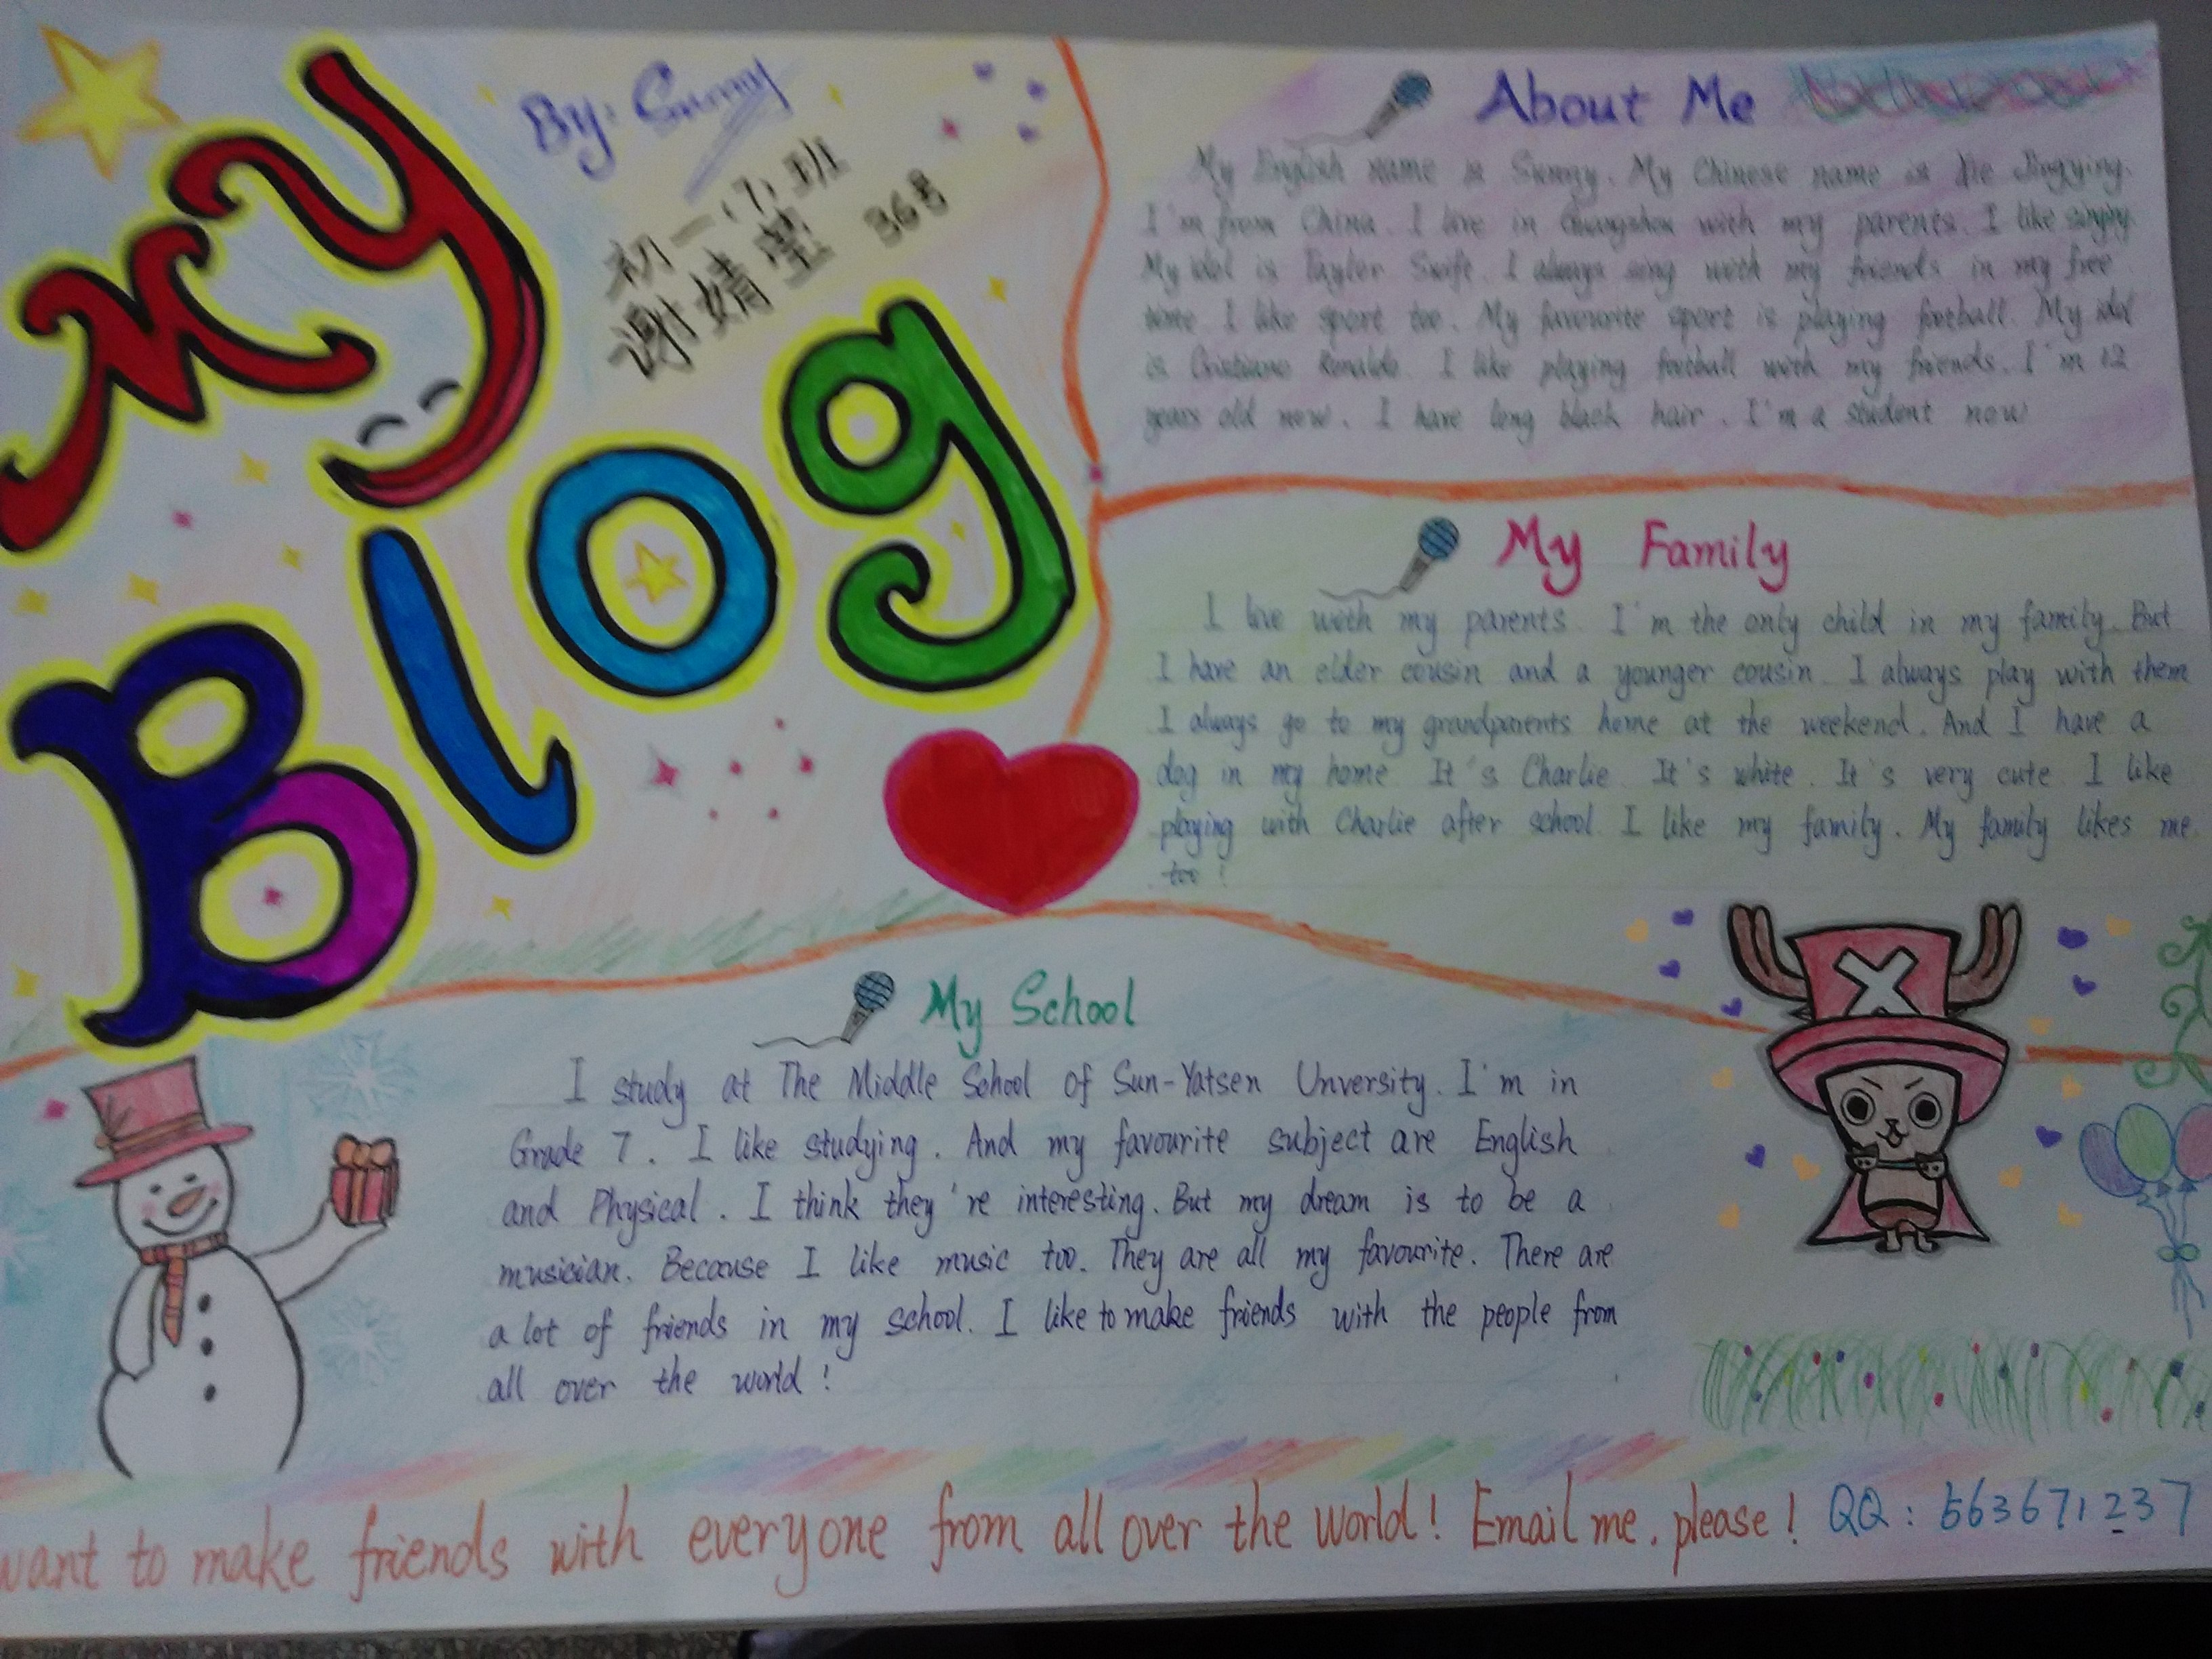 My
Blog
By: Sunny
初一(7)班
谢婧莹 36号
About Me
My English name is Sunny. My Chinese name is Xie Jingying.
I'm from China. I live in Guangzhou with my parents. I like singing.
My idol is Taylor Swift. I always sing with my friends in my free
time. I like sport too. My favourite sport is playing football. My idol
is Cristiano Ronaldo. I like playing football with my friends. I'm 12
years old now. I have long black hair. I'm a student now
My Family
I live with my parents. I'm the only child in my family. But
I have an elder cousin and a younger cousin. I always play with them
I always go to my grandparents home at the weekend. And I have a
dog in my home. It's Charlie. It's white. It's very cute. I like
playing with Charlie after school. I like my family. My family likes me
too!
My School
I study at The Middle School of Sun-Yatsen Unversity. I'm in
Grade 7. I like studying. And my favourite subject are English
and Physical. I think they're interesting. But my dream is to be a
musician. Because I like music too. They are all my favourite. There are
a lot of friends in my school. I like to make friends with the people from
all over the world!
want to make friends with everyone from all over the world! Email me, please! QQ: 563671237